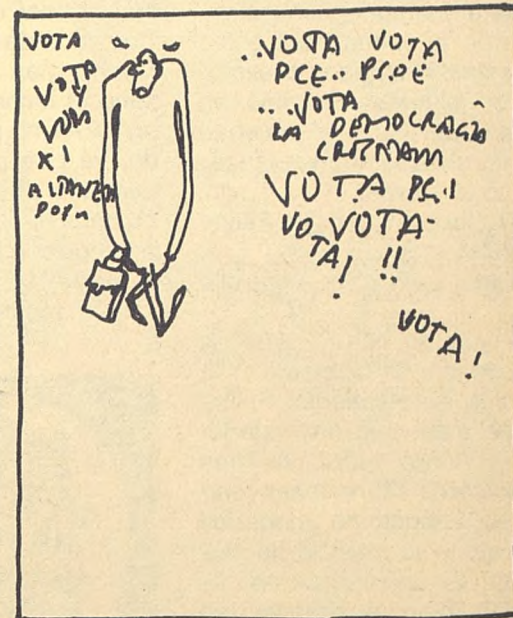 VOTA
VOTA
Y
VOTA
X I
ALIANZA
POPU
..VOTA VOTA
PCE.. PSOE
...VOTA
LA DEMOCRACIA
VOTA PC.I
VO VOTA-
TA! !!
VOTA!